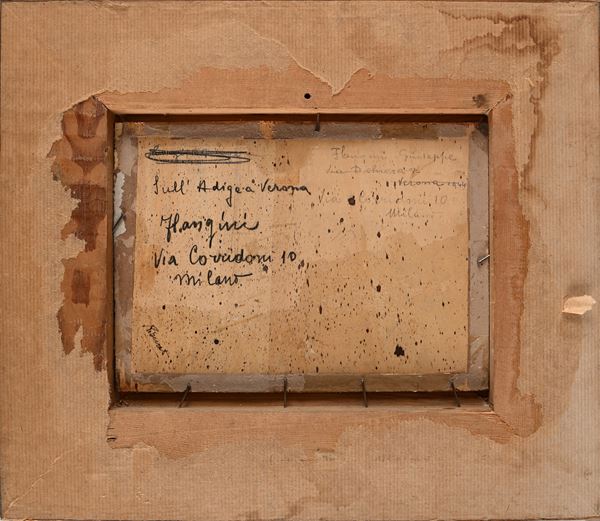 Sull' Adige a Verona
Flangini
Via Corridoni 10
Milano
Flangini Giuseppe
Via
Verona
Via Corridoni 10
Milano